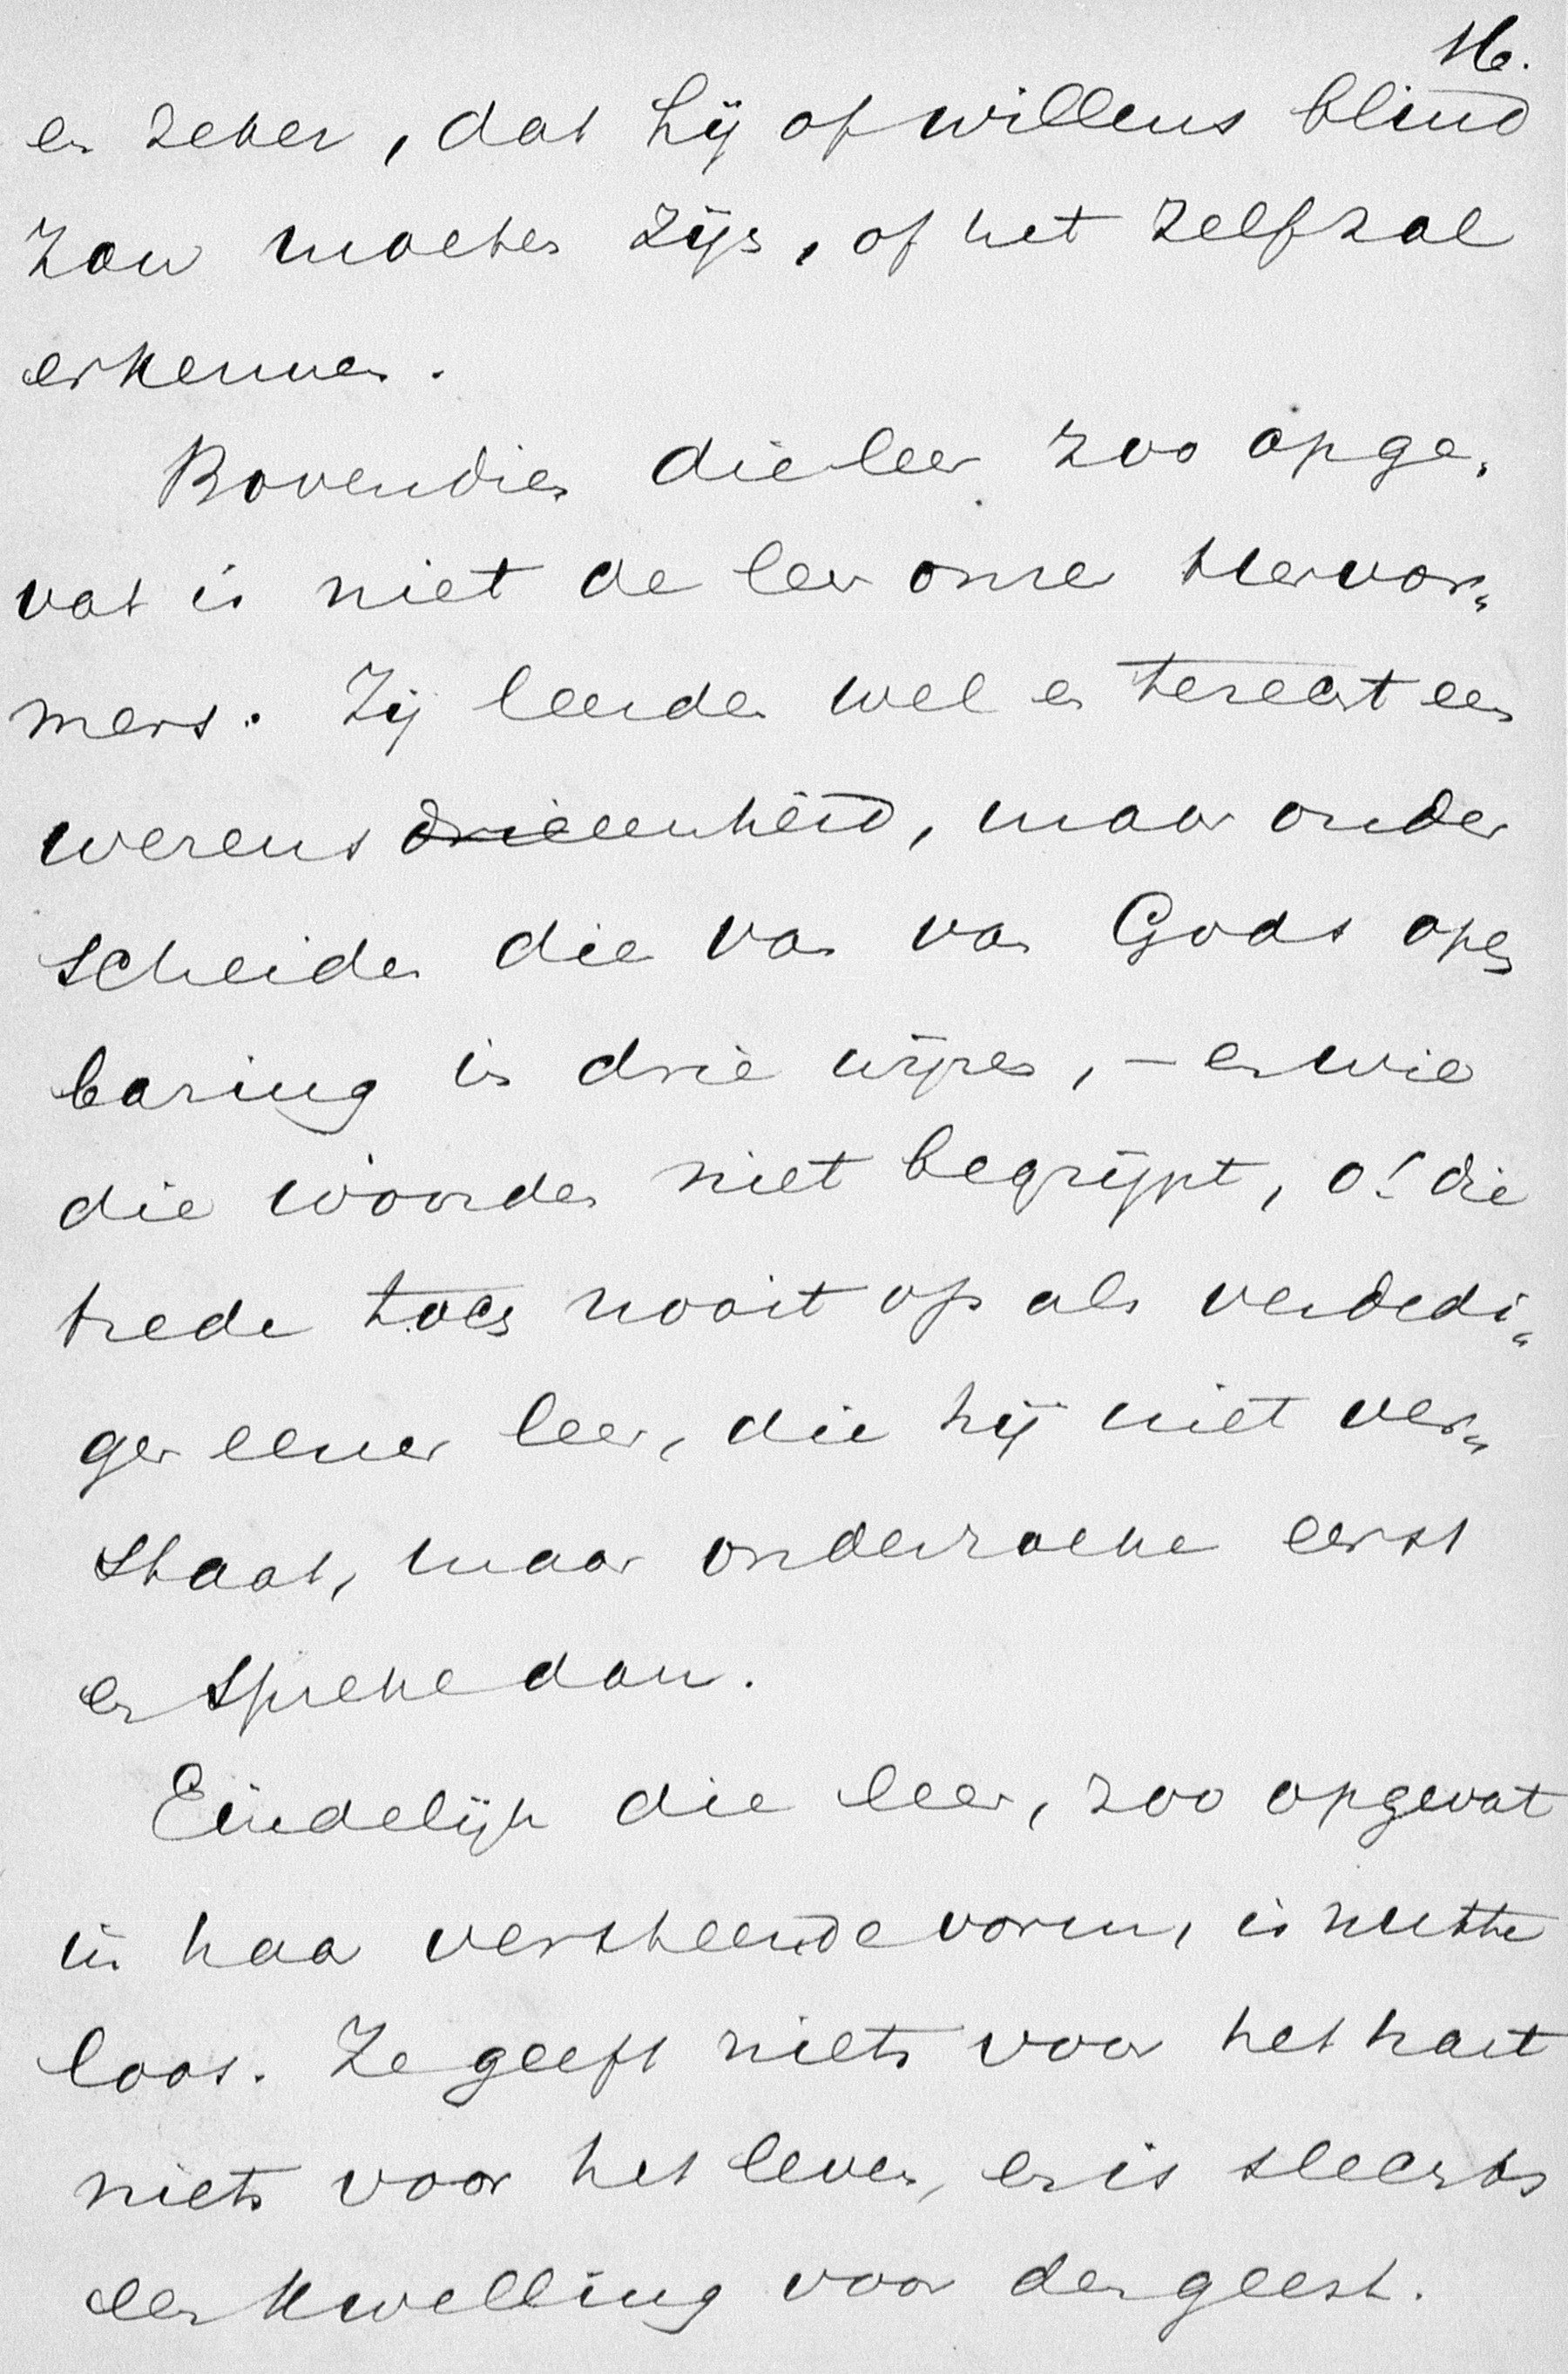 16.
en zeker, dat hij of willens blind
zou moeten zijn, of het zelf zal
erkennen.
Bovendien die leer zoo opge„
vat is niet de leer onzer Hervor„
mers. Zij leerden wel en terecht een
wezens drieeenheid, maar onder
scheiden die van van Gods open
baring in drie wijzen, – en wie
die woorden niet begrijpt, o! die
trede toch nooit op als verdedi„
ger eener leer, die hij niet ver„
staat, maar onderzoeke eerst
en spreke dan.
Eindelijk die leer, zoo opgevat
in haar versteende vorm, is nutte
loos. Ze geeft niets voor het hart
niets voor het leven, en is slechts
een kwelling voor den geest.